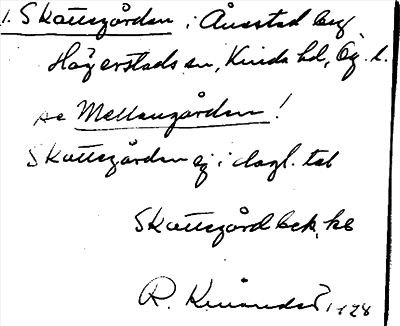 1. Skattegården i Ånestad by
Hägerstads sn, Kinda hd, Ög. l.
se Mellangården!
Skattegården ej i dagl. tal
Skattegård bek. hb
R. 1928